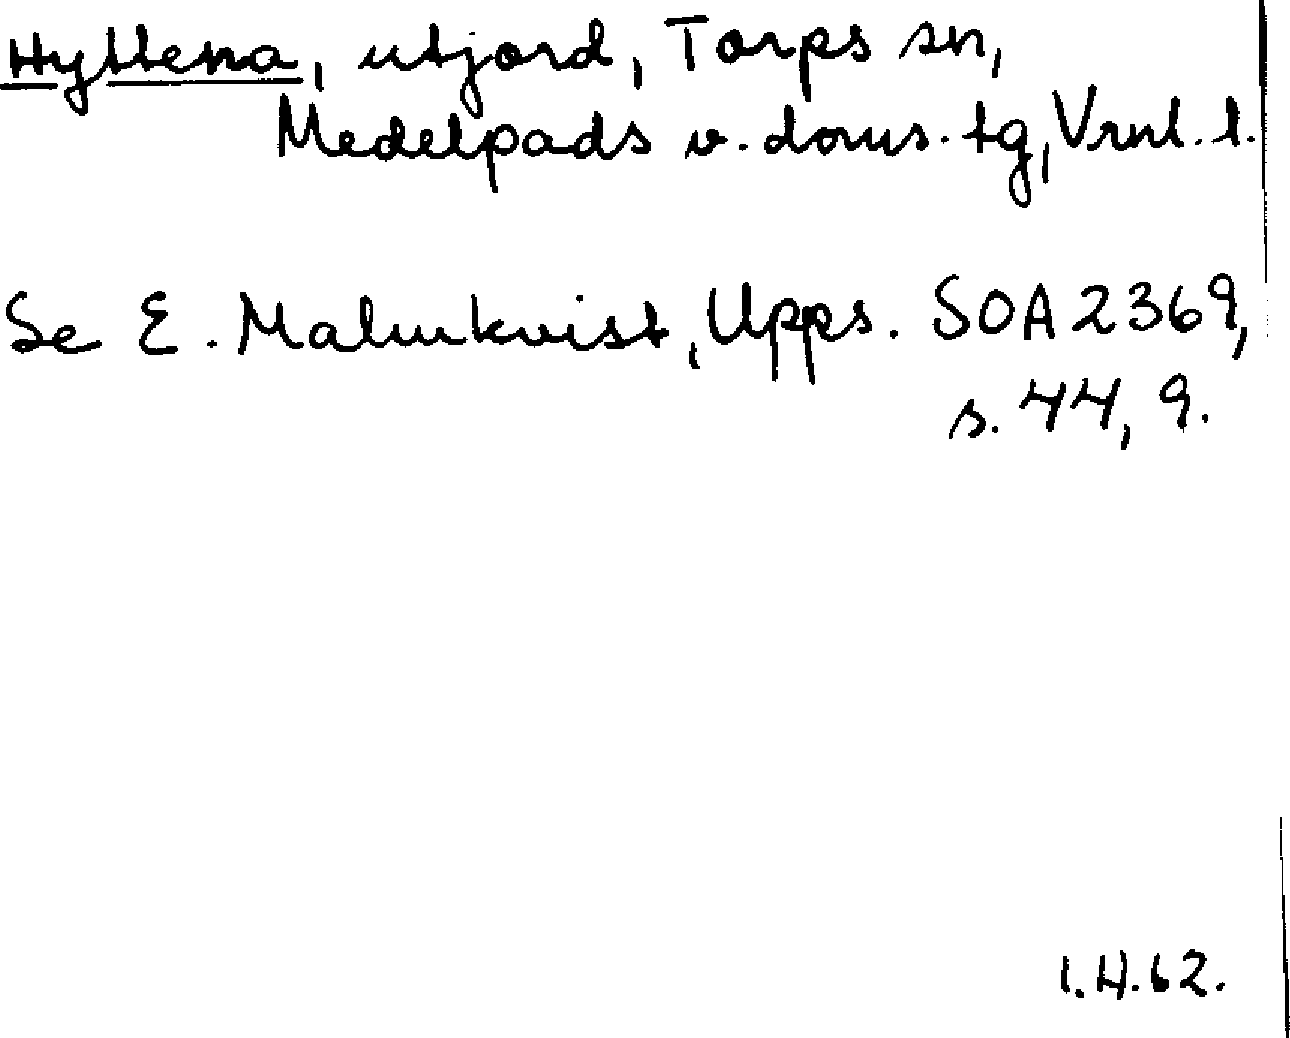 Hyttena, utjord, Torps sn,
Medelpads v. doms. tg, Vrnl. l.
Se E. Malmkvist, Upps. SOA 2369,
s. 44, 9.
1.4.62.